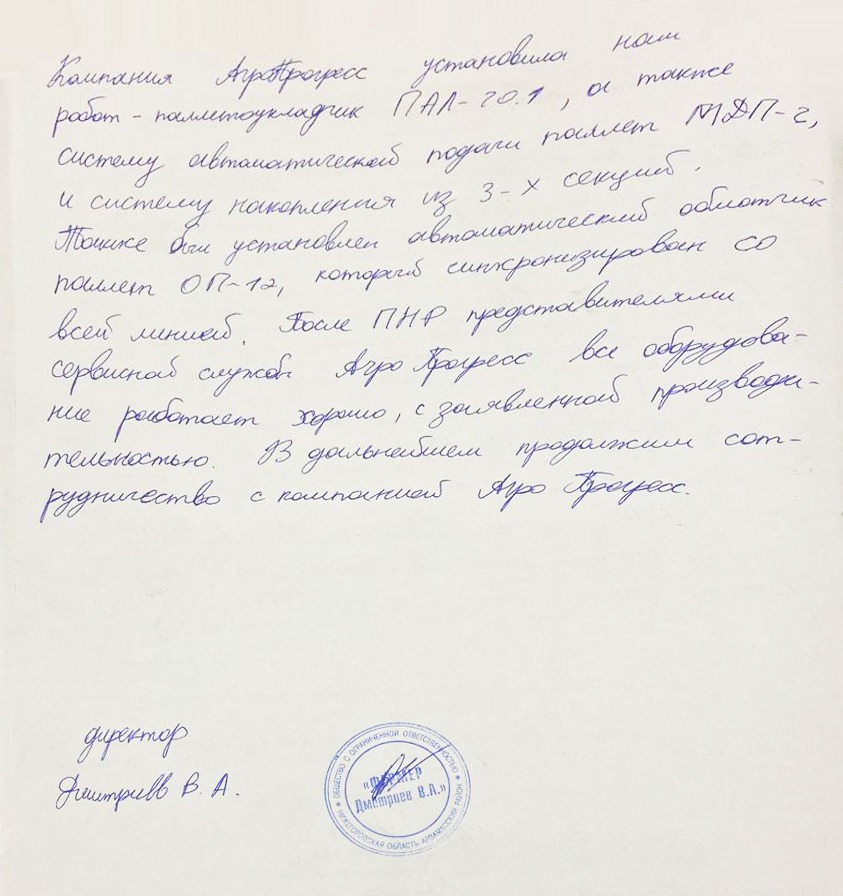 Компания АгроПрогресс установила нам
робот-паллетоукладчик ПАЛ-20.1, а также
систему автоматической подачи паллет МДП-2,
и систему накопления из 3-х секций.
Также был установлен автоматический обмотчик
паллет ОП-12, который синхронизирован со
всей линией. После ПНР представителями
сервисной службы Агро Прогресс все оборудова-
ние работает хорошо, с заявленной производи-
тельностью. В дальнейшем продолжим сот-
рудничество с компанией Агро Прогресс.
директор
Дмитриев В. А.
ОБЩЕСТВО С ОГРАНИЧЕННОЙ ОТВЕТСТВЕННОСТЬЮ
«ФЕРМЕР
Дмитриев В.А.»
НИЖЕГОРОДСКАЯ ОБЛАСТЬ, АРЗАМАССКИЙ РАЙОН